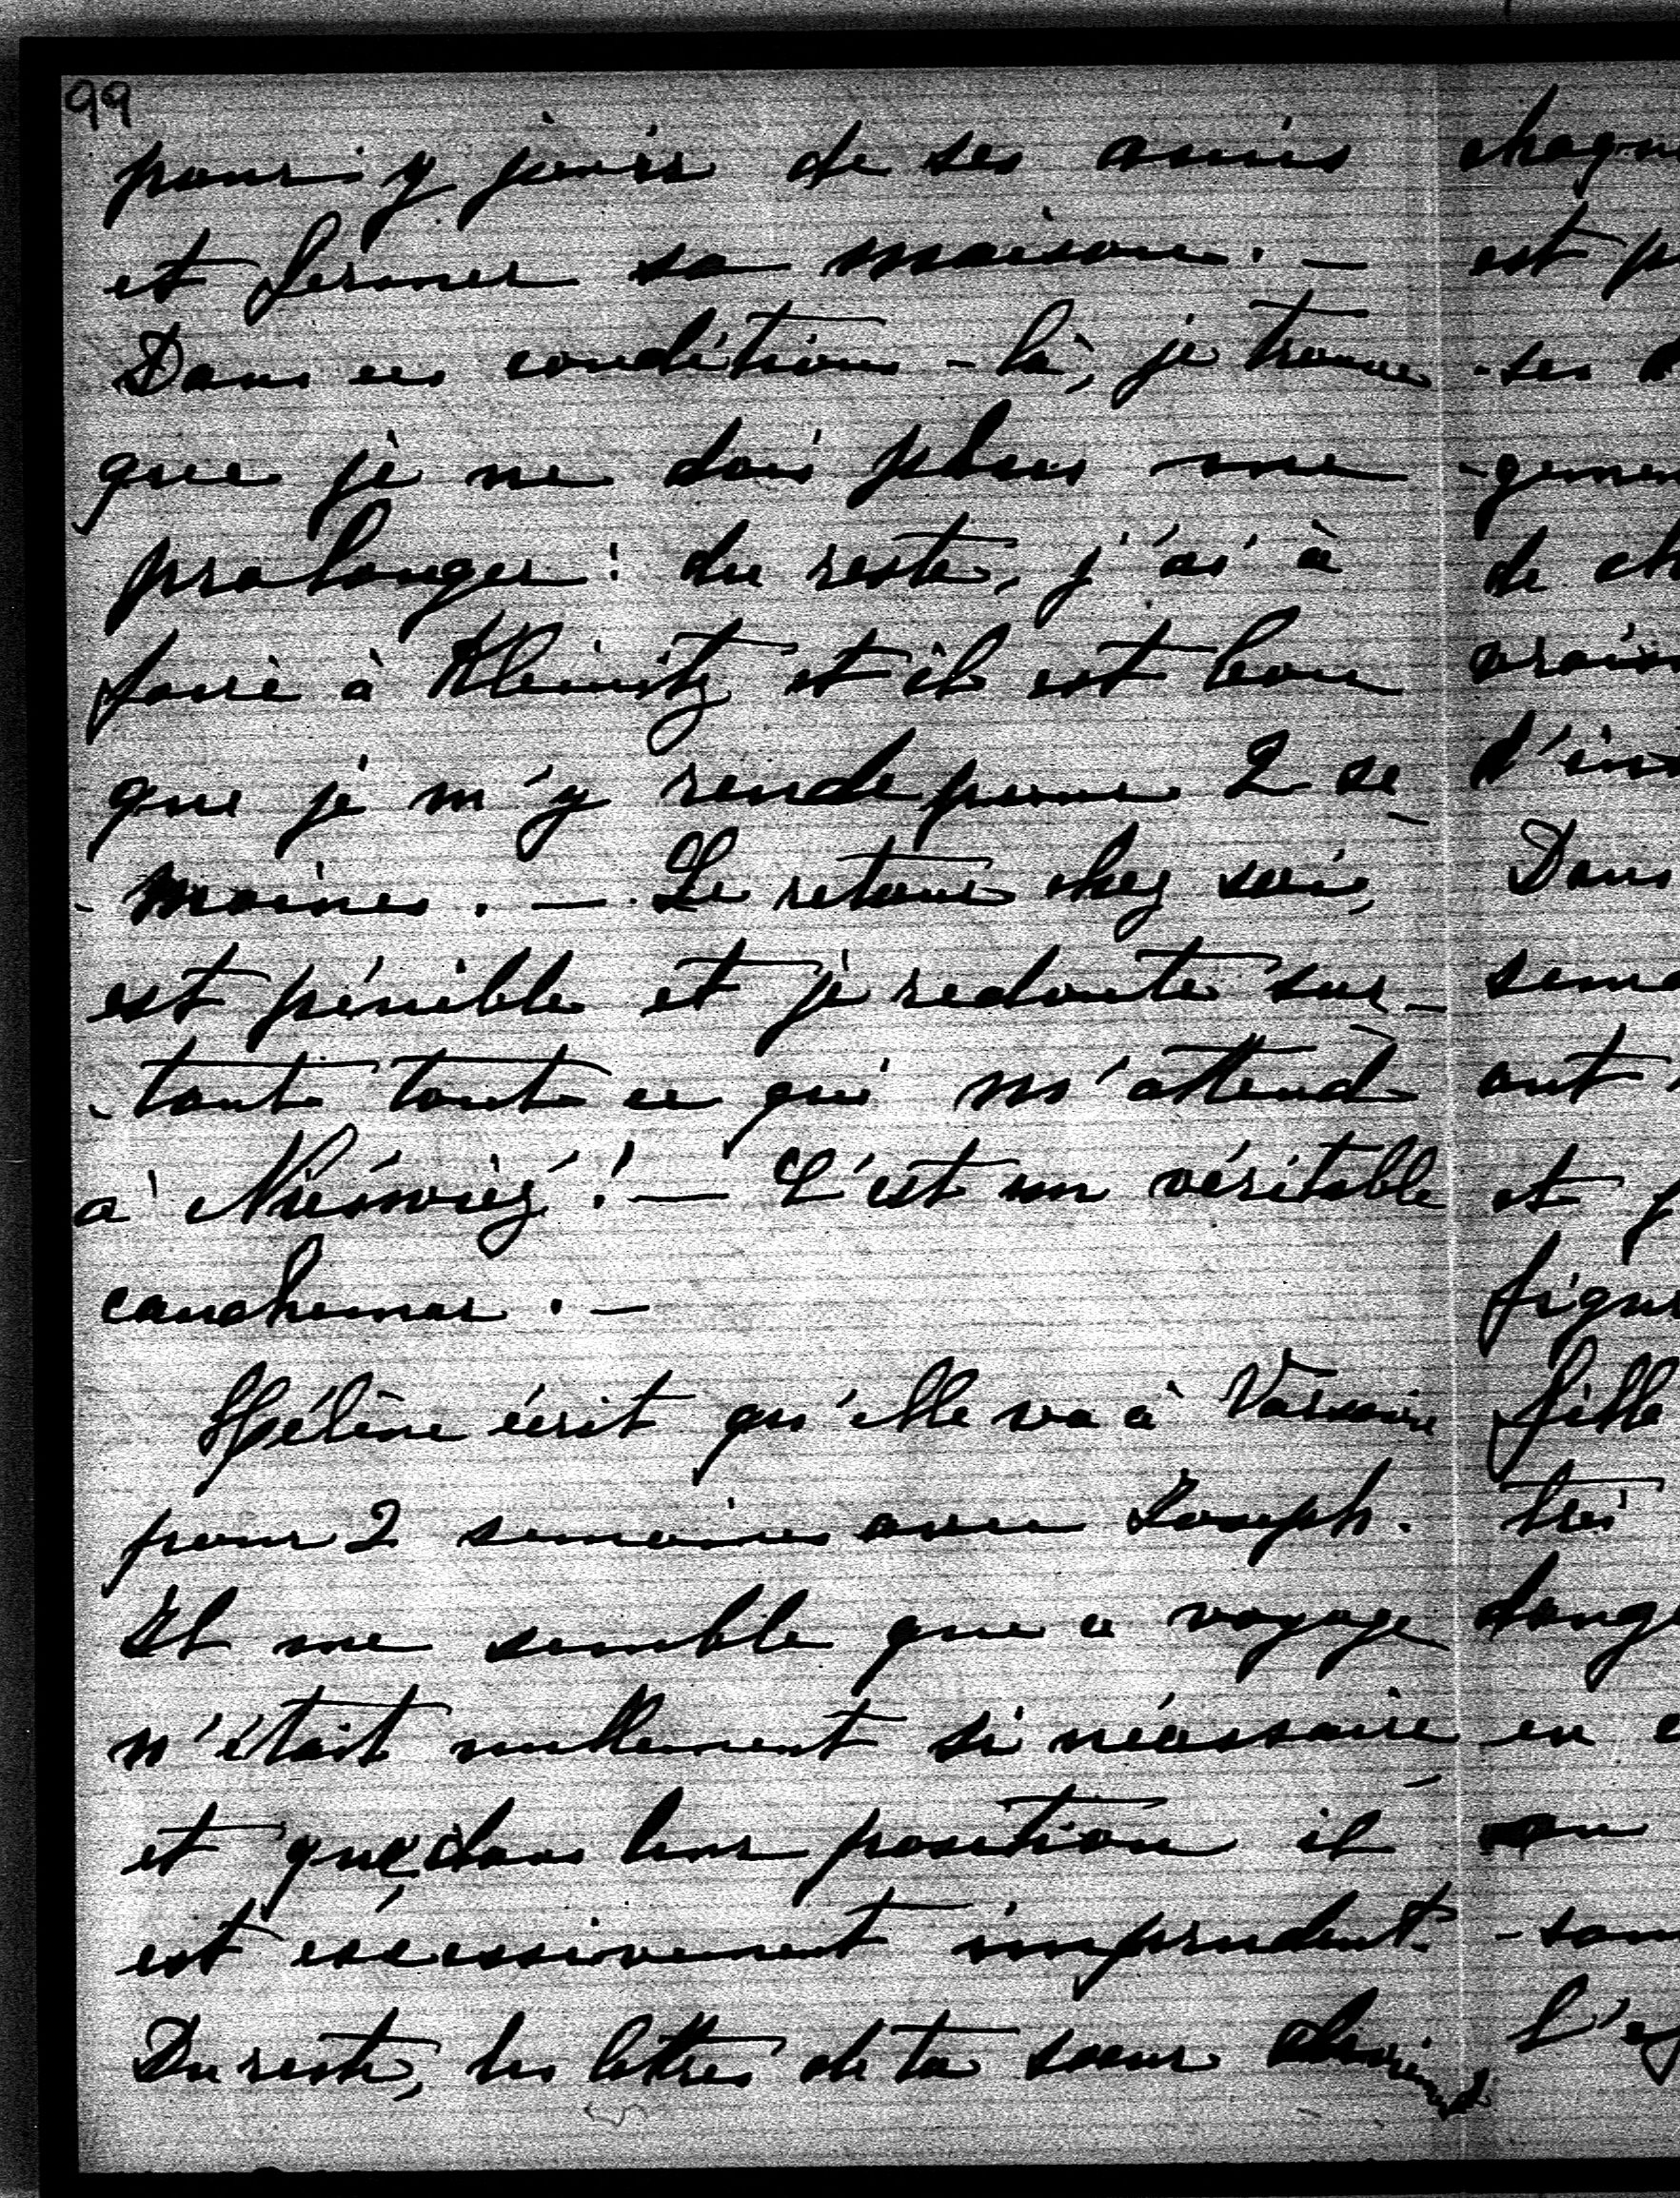 99
pour y jouir de ses amis
et fermer sa maison. —
Dans ces conditions-là, je trouve
que je ne dois plus me
prolonger! du reste, j'ai à
faire à Kleinitz et il est bon
que je m'y rende pour 2 se-
-maines. — Le retour chez soi,
est pénible et je redoute sur-
-tout tout ce qui m'attend
à Niéświéź! — C'est un véritable
cauchemar. —
Hélène écrit qu'elle va à Varsovie
pour 2 semaines avec Joseph.
Il me semble que ce voyage
n'était nullement si nécessaire
et que dans leur position il
est excessivement imprudent.
Du reste, les lettres de ta sœur
est
-ses
de
Dans
ont
et
fille
très
en